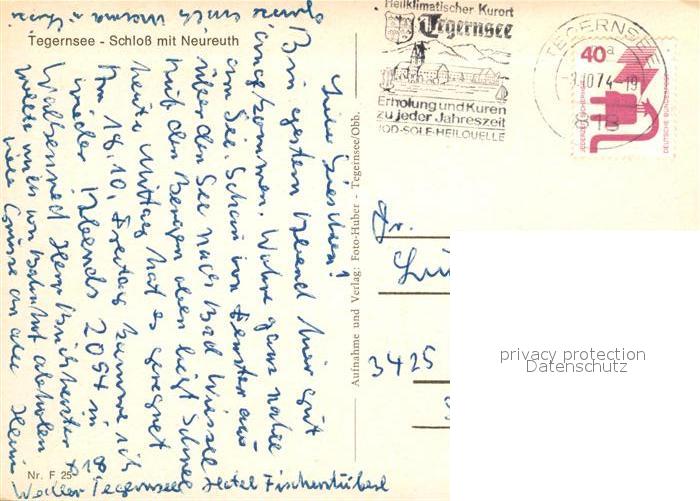 Tegernsee - Schloß mit Neureuth
Liebe Lieschen!
Bin gestern Abend hier gut
angekommen. Wohne ganz nahe
am See. Schau im Fenster aus
über den See nach Bad Wiessee
Auf den Bergen oben liegt Schnee
heute Mittag hat es geregnet
Am 18.10. Freitag komme ich
wieder Abends 20 54 in
Walkenried Herr
wollte mich vom Bahnhof abholen
viele Grüsse an alle Heini
Tegernsee Hotel Fischerstüberl
Nr. F 25
Aufnahme und Verlag: Foto-Huber - Tegernsee/Obb.
Heilklimatischer Kurort
Tegernsee
Erholung und Kuren
zu jeder Jahreszeit
JOD-SOLE-HEILQUELLE
TEGERNSEE
10.74-19
818
40
JEDERZEIT SICHERHEIT
DEUTSCHE BUNDESPOST
Fr.
3425
privacy protection
Datenschutz